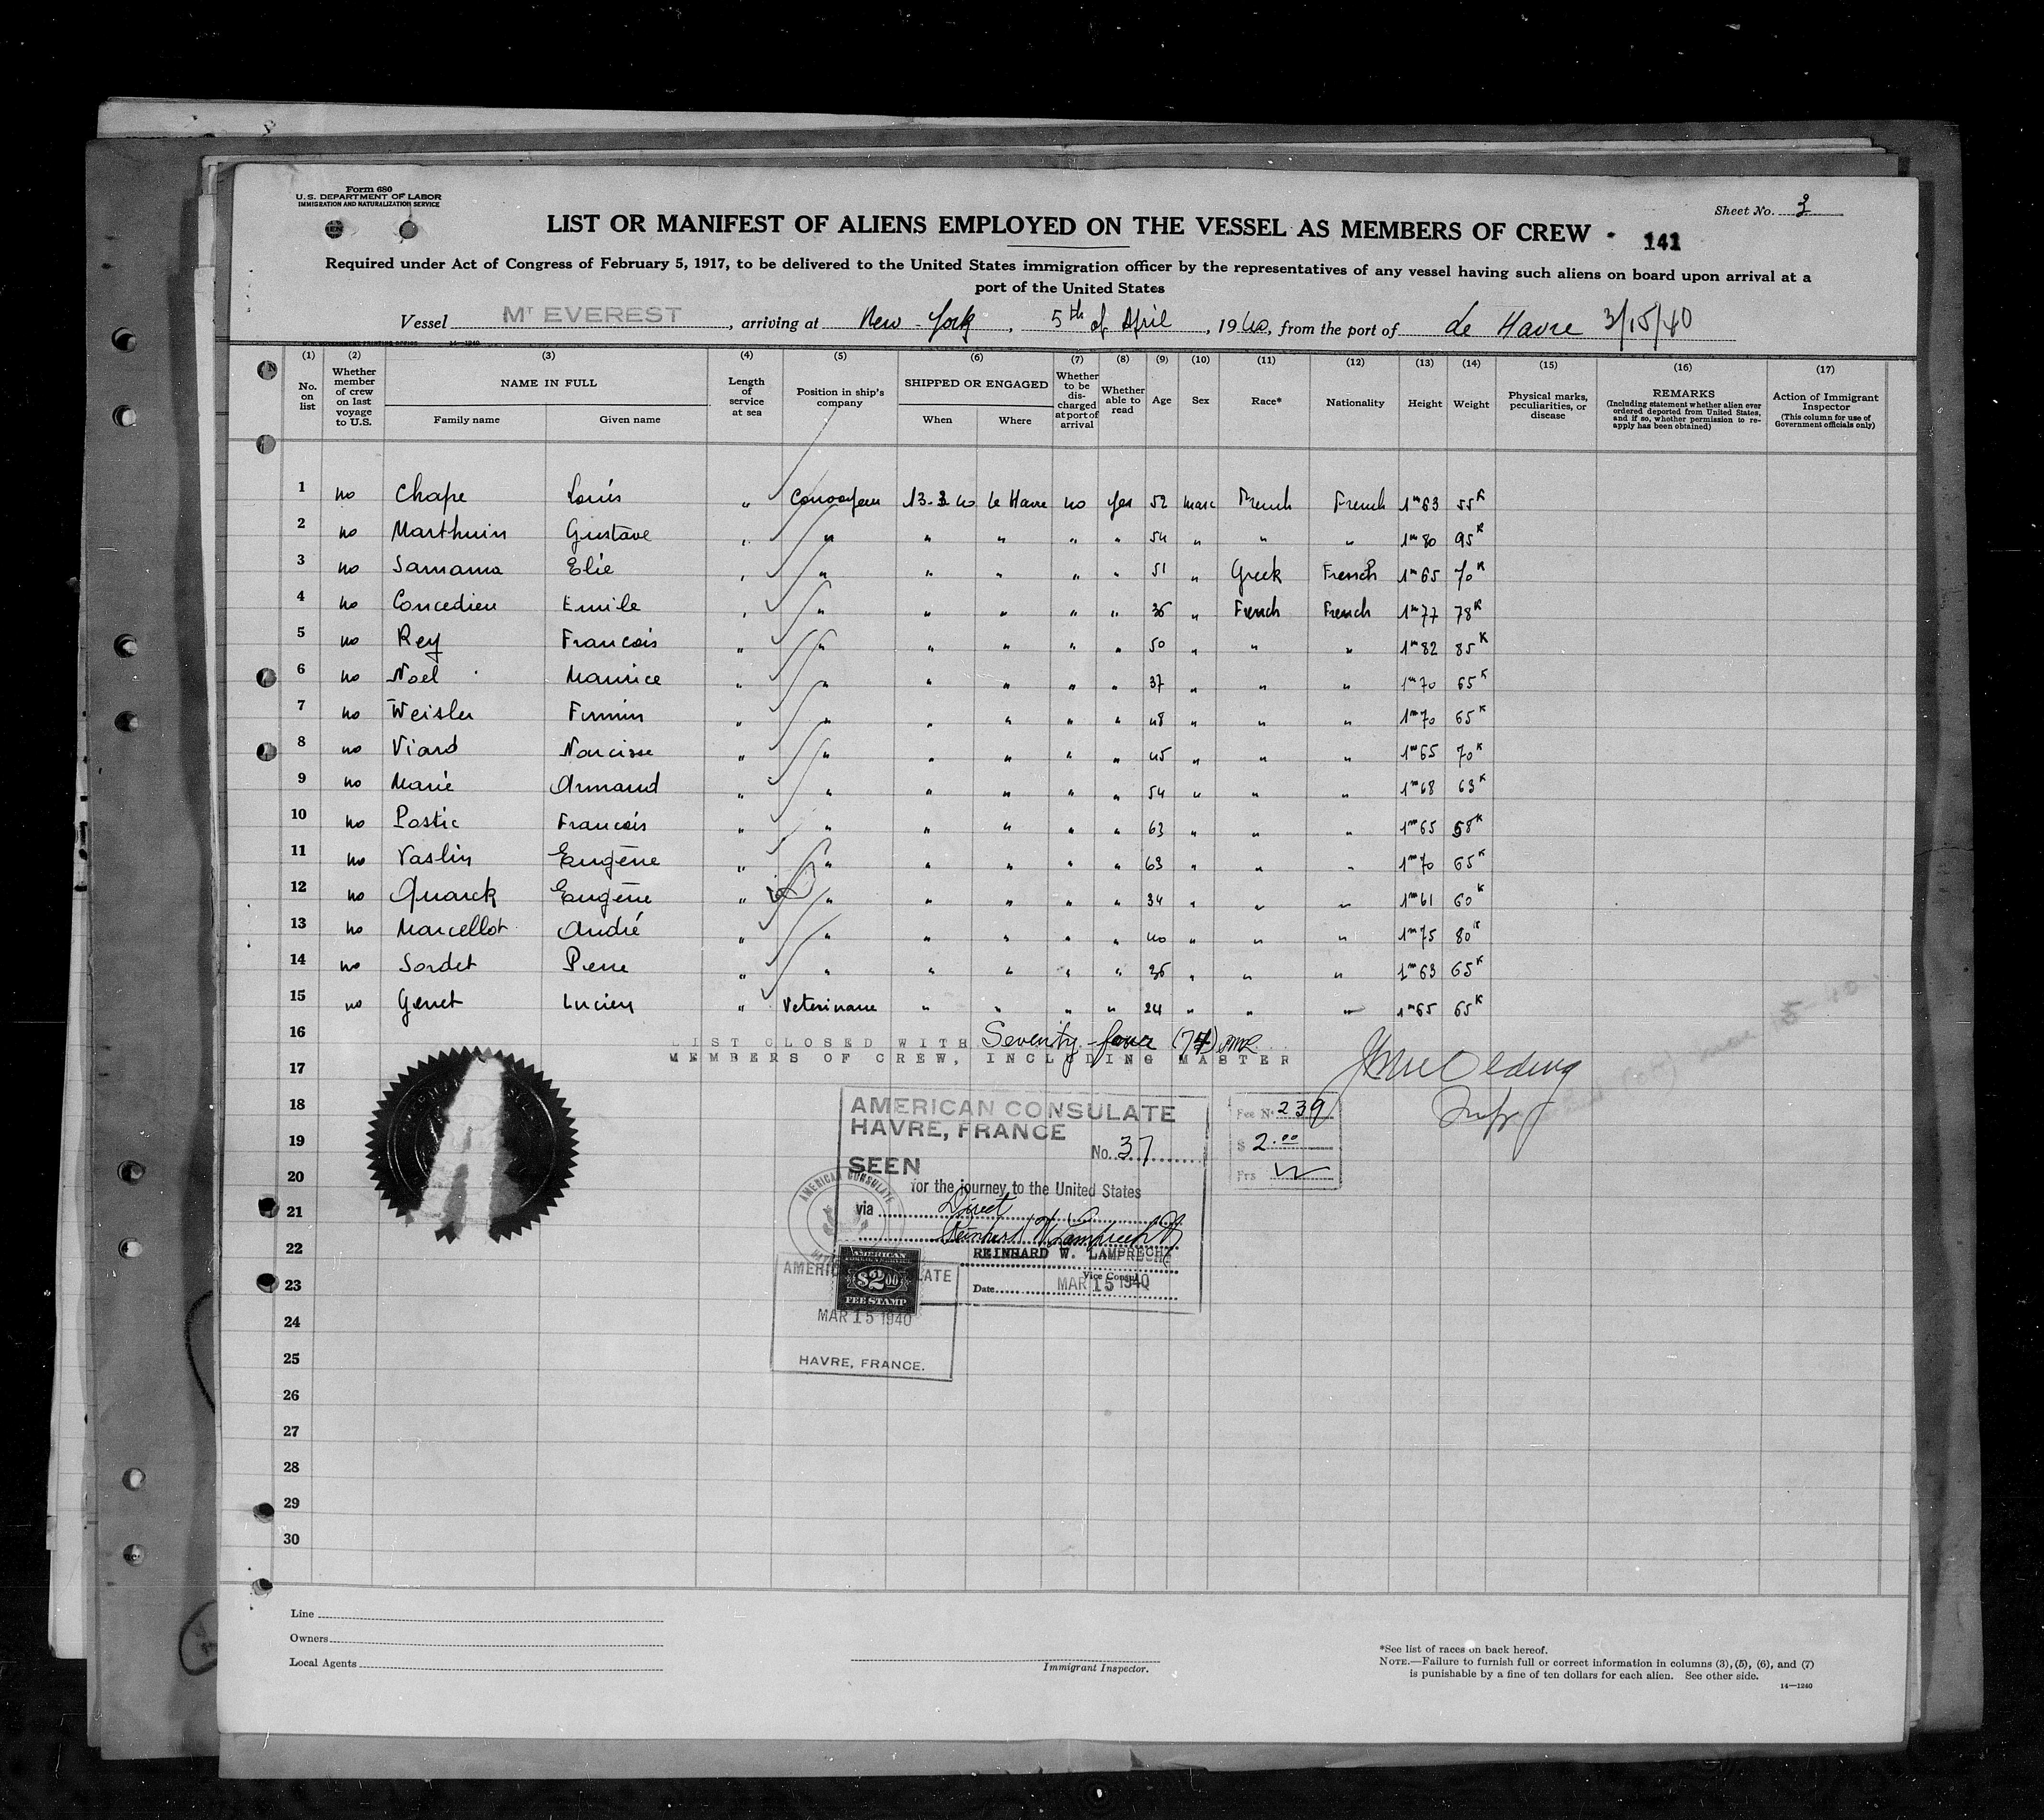 Form 680
U. S. DEPARTMENT OF LABOR
IMMIGRATION AND NATURALIZATION SERVICE
Sheet No. 3
LIST OR MANIFEST OF ALIENS EMPLOYED ON THE VESSEL AS MEMBERS OF CREW 141
Required under Act of Congress of February 5, 1917, to be delivered to the United States immigration officer by the representatives of any vessel having such aliens on board upon arrival at a
port of the United States
Vessel MT EVEREST, arriving at New-York, 5th of April, 1940, from the port of le Havre 3/15/40
14—1240
(1) (2) (3) (4) (5) (6) (7) (8) (9) (10) (11) (12) (13) (14) (15) (16) (17)
No. on list
Whether member of crew on last voyage to U.S.
NAME IN FULL
Family name Given name
Length of service at sea
Position in ship's company
SHIPPED OR ENGAGED
When Where
Whether to be discharged at port of arrival
Whether able to read
Age
Sex
Race*
Nationality
Height
Weight
Physical marks, peculiarities, or disease
REMARKS
(Including statement whether alien ever ordered deported from United States, and if so, whether permission to re-apply has been obtained)
Action of Immigrant Inspector
(This column for use of Government officials only)
1 no Chape Louis " Convoyeur 13-3 40 le Havre no yes 52 masc French French 1m63 55K
2 no Marthuin Gustave " " " " " " 54 " " " 1m80 95K
3 no Samama Elie " " " " " " 51 " Greek French 1m65 70K
4 no Concedieu Emile " " " " " " 36 " French French 1m77 78K
5 no Rey Francois " " " " " " 50 " " " 1m82 85K
6 no Noel Maurice " " " " " " 37 " " " 1m70 65K
7 no Weisler Firmin " " " " " " 48 " " " 1m70 65K
8 no Viard Narcisse " " " " " " 45 " " " 1m65 70K
9 no Marie Armand " " " " " " 54 " " " 1m68 63K
10 no Postic Francois " " " " " " 63 " " " 1m65 58K
11 no Vaslin Eugène " " " " " " 63 " " " 1m70 65K
12 no Quarck Eugène " " " " " " 34 " " " 1m61 60K
13 no Marcellot André " " " " " " 40 " " " 1m75 80K
14 no Sordet Pierre " " " " " " 36 " " " 1m63 65K
15 no Genet Lucien " Veterinaire " " " " 24 " " " 1m65 65K
16
LIST CLOSED WITH Seventy-four (74)
MEMBERS OF CREW, INCLUDING MASTER
17
18
19
20
21
22
23
24
25
26
27
28
29
30
AMERICAN CONSULATE
HAVRE, FRANCE
No. 37
SEEN
for the journey to the United States
via Direct
Reinhard W. Lamprecht
REINHARD W. LAMPRECHT
Vice Consul
Date MAR 15 1940
Fee No. 239
$ 2.00
Frs
AMERICAN CONSULATE
AMERICAN
FOREIGN SERVICE
$2.00
FEE STAMP
AMERICAN CONSULATE
MAR 15 1940
HAVRE, FRANCE.
Line
Owners
Local Agents
Immigrant Inspector.
*See list of races on back hereof.
NOTE.—Failure to furnish full or correct information in columns (3), (5), (6), and (7)
is punishable by a fine of ten dollars for each alien. See other side.
14—1240